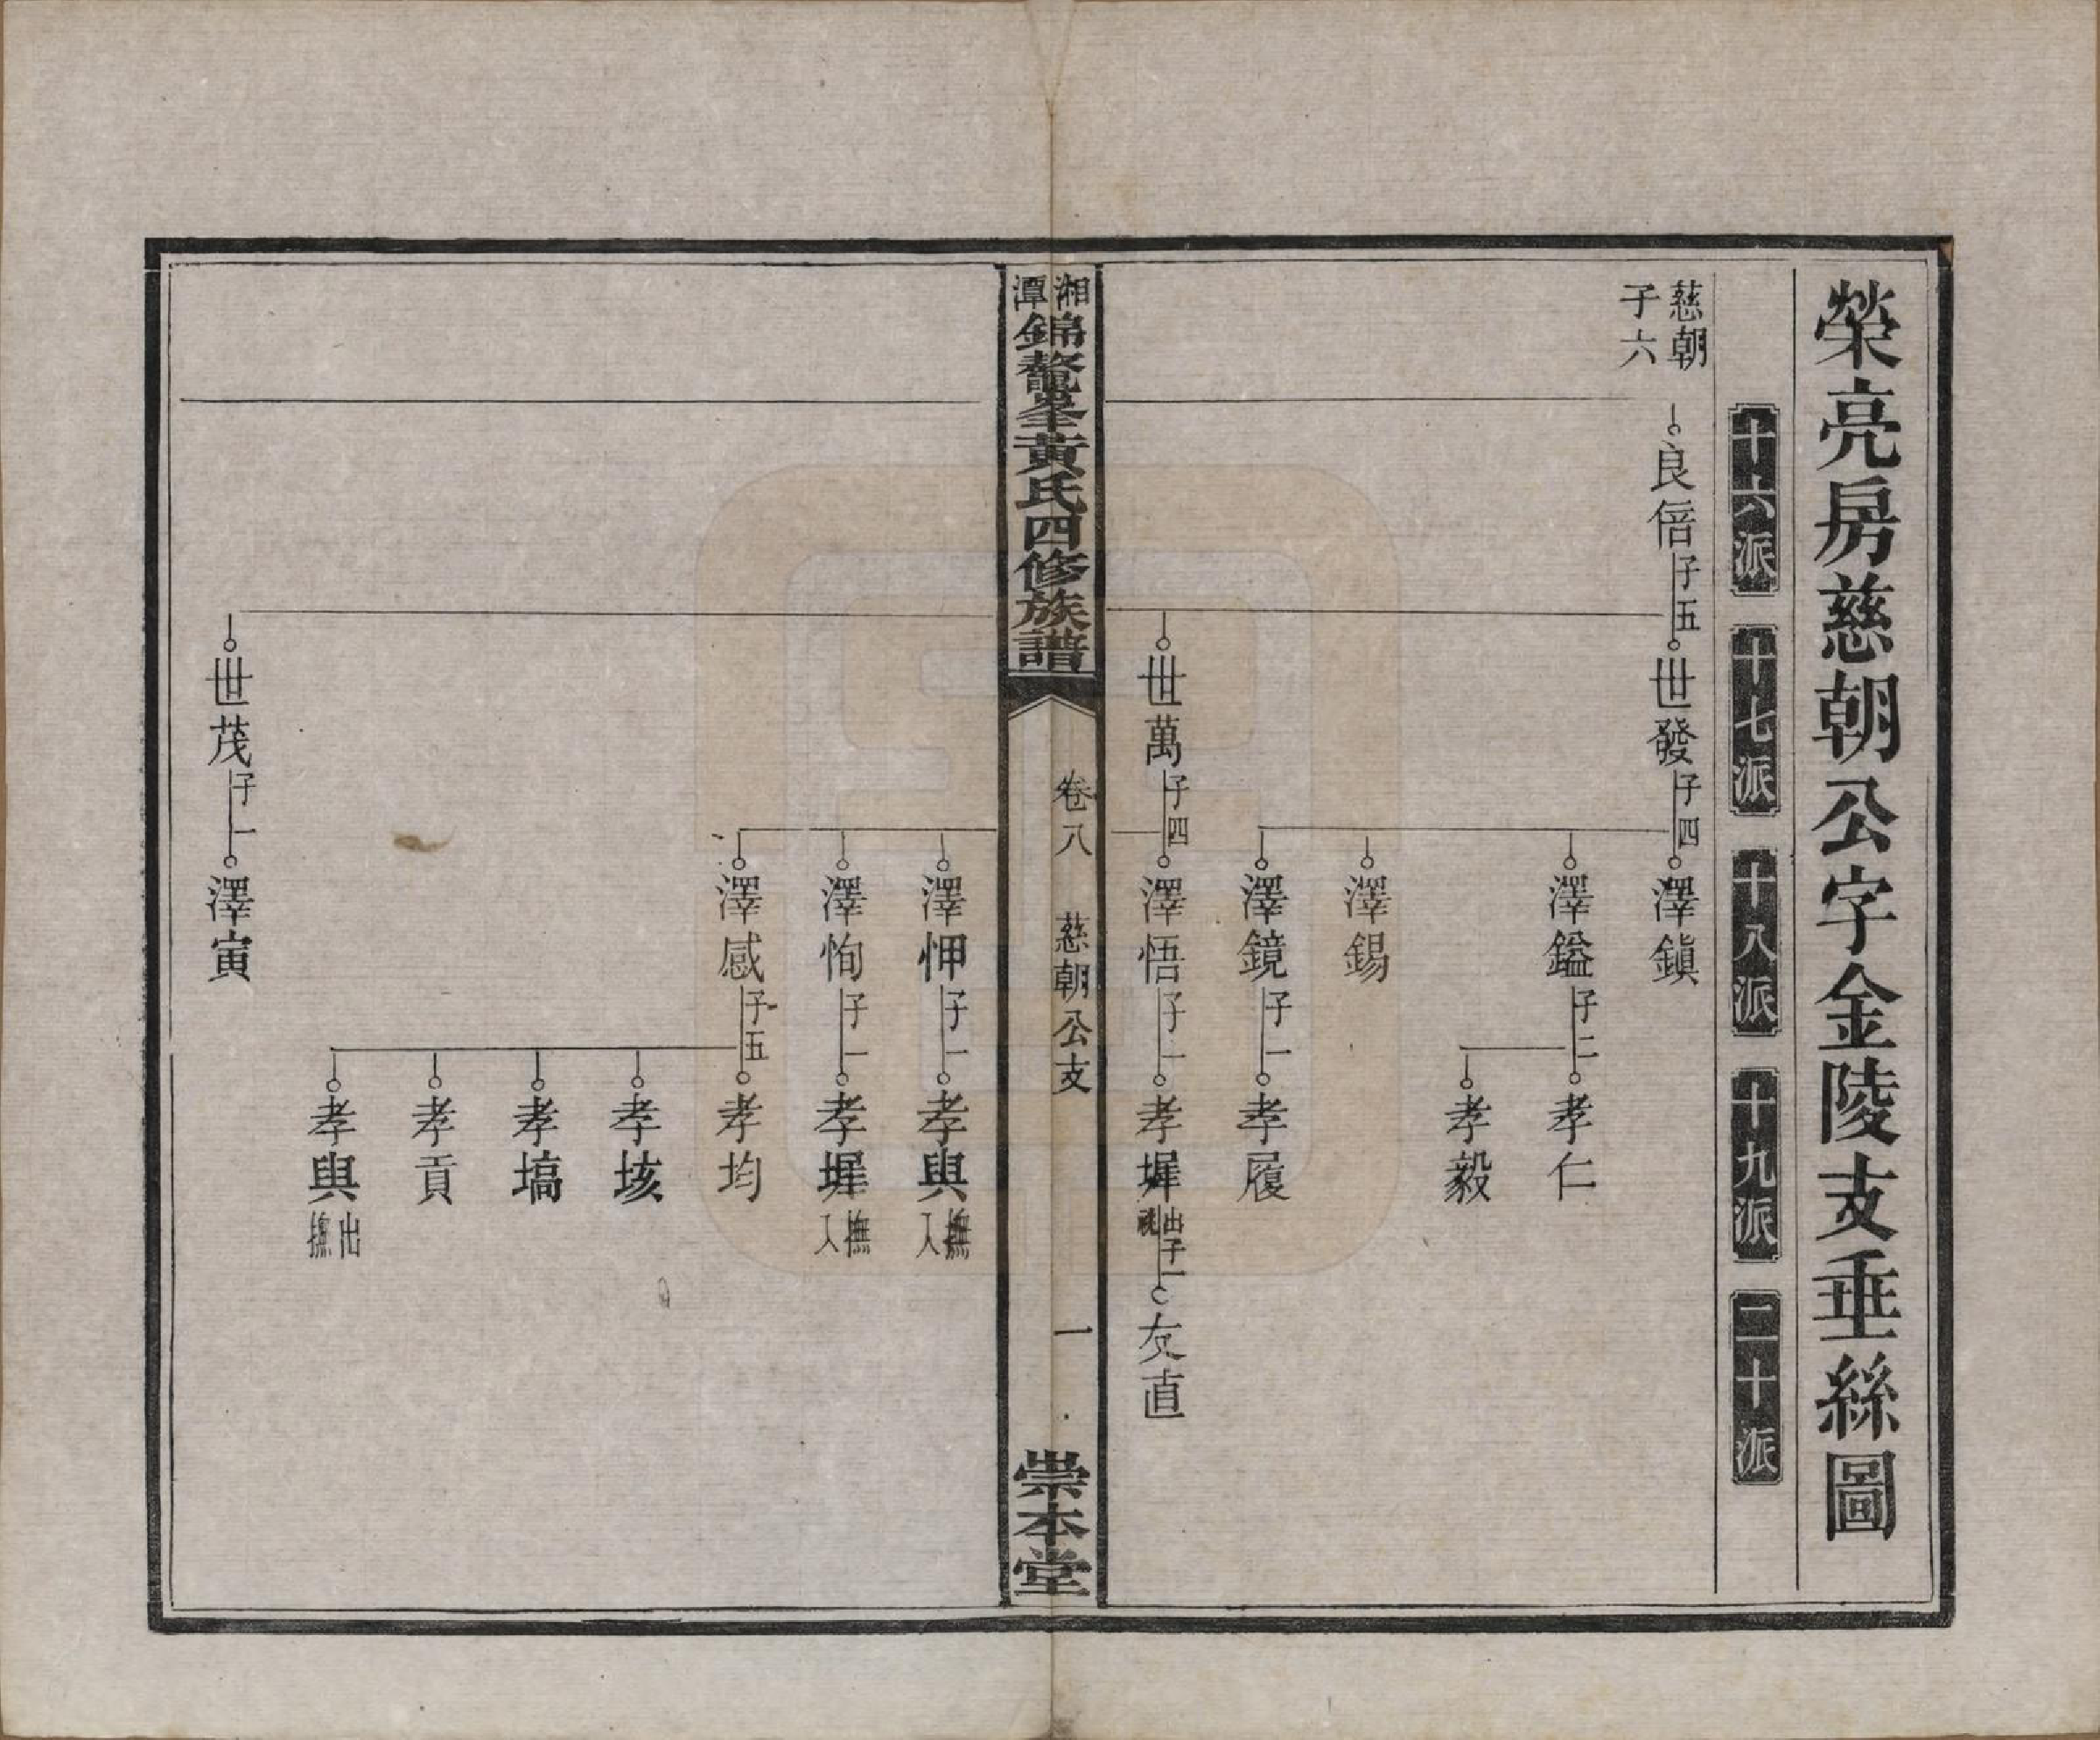 榮亮房慈朝公字金陵支垂絲圖
十六派 十七派 十八派 十九派 二十派
慈朝子六
良倍子五 世發子四 澤鎮
澤鎰子二 孝仁
孝毅
澤錫
澤鏡子一 孝履
世萬子四 澤悟子一 孝墀出祧子一 友直
湘潭錦鰲峯黃氏四修族譜 卷八 慈朝公支 一 崇本堂
澤㤉子一 孝與撫入
澤恂子一 孝墀撫入
澤感子五 孝均
孝垓
孝塙
孝貢
孝與出撫
世茂子一 澤寅